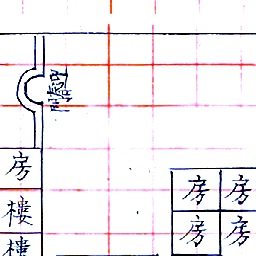 房
樓
樓
房 房
房 房